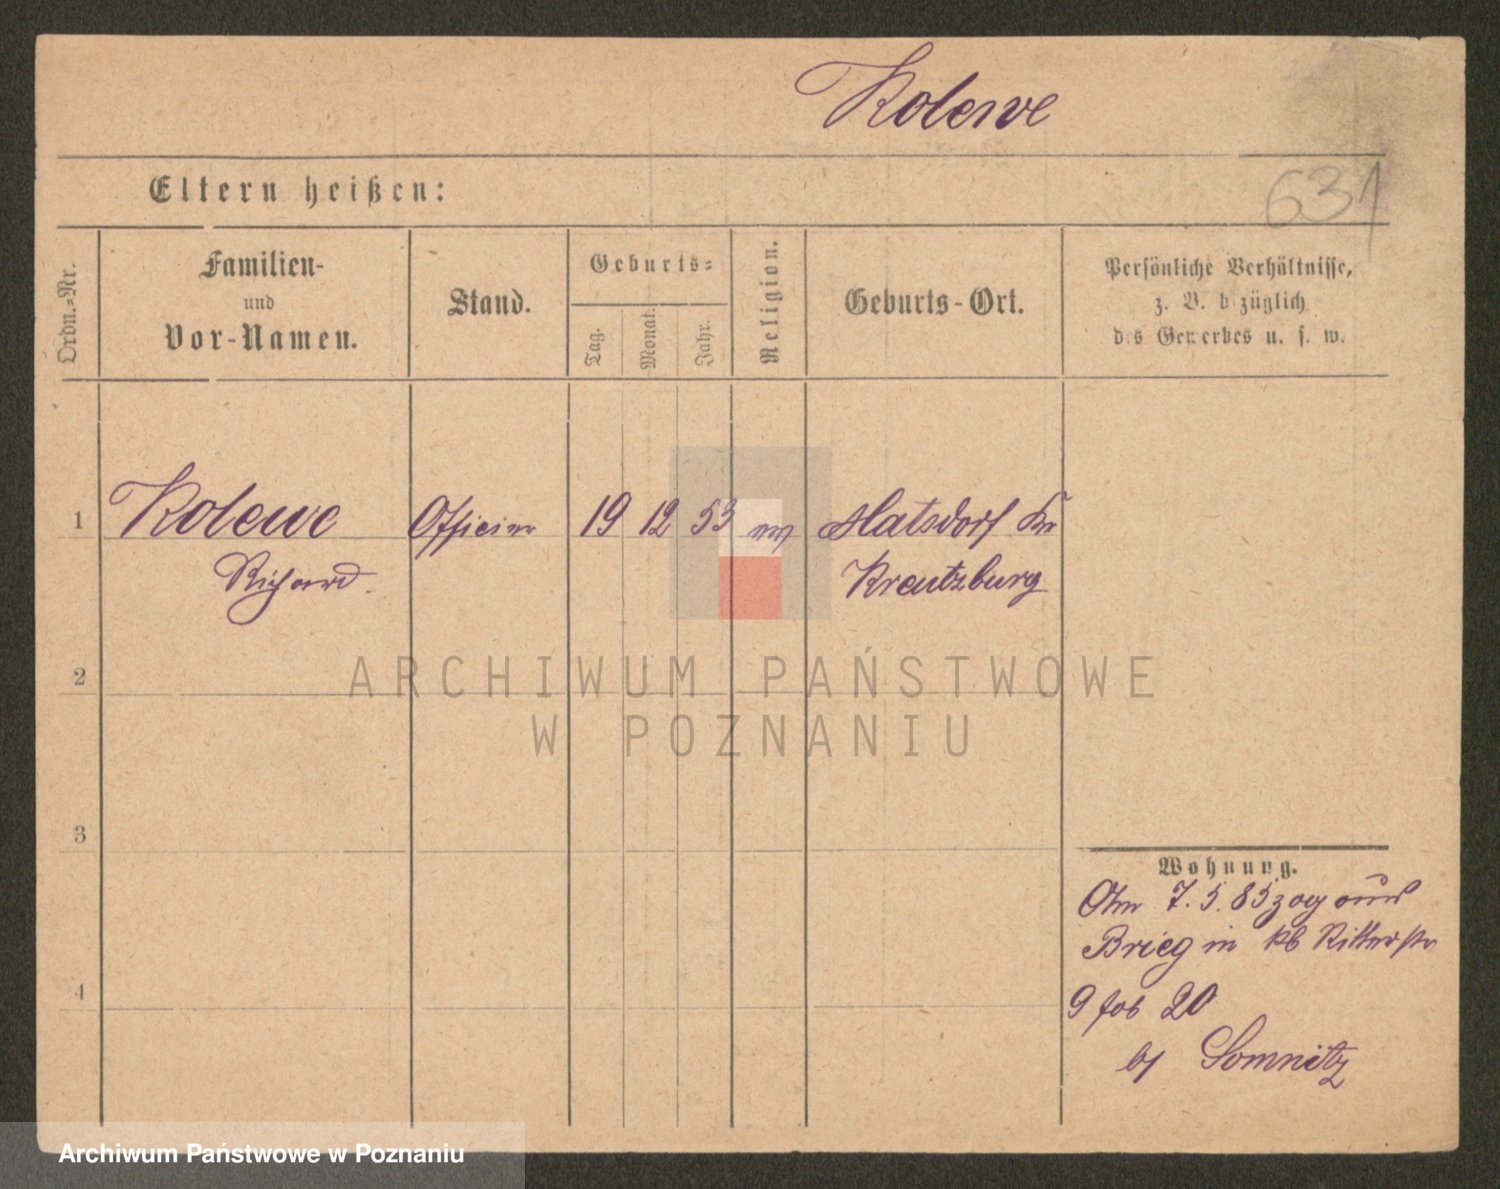 Kolewe
631
Eltern heißen:
Ordn.-Nr.
Familien-
und
Vor-Namen.
Stand.
Geburts-
Tag.
Monat.
Jahr.
Religion.
Geburts-Ort.
Persönliche Verhältnisse,
z. B. bezüglich
des Gewerbes u. s. w.
1
Kolewe
Richard.
Officier
19
12
53
Matsdorf Kr
Kreutzburg
2
3
4
Wohnung.
7. 5. 85 zog aus
Brieg in Ritterstr
9 20
b/ Somnitz
ARCHIWUM PAŃSTWOWE
W POZNANIU
Archiwum Państwowe w Poznaniu